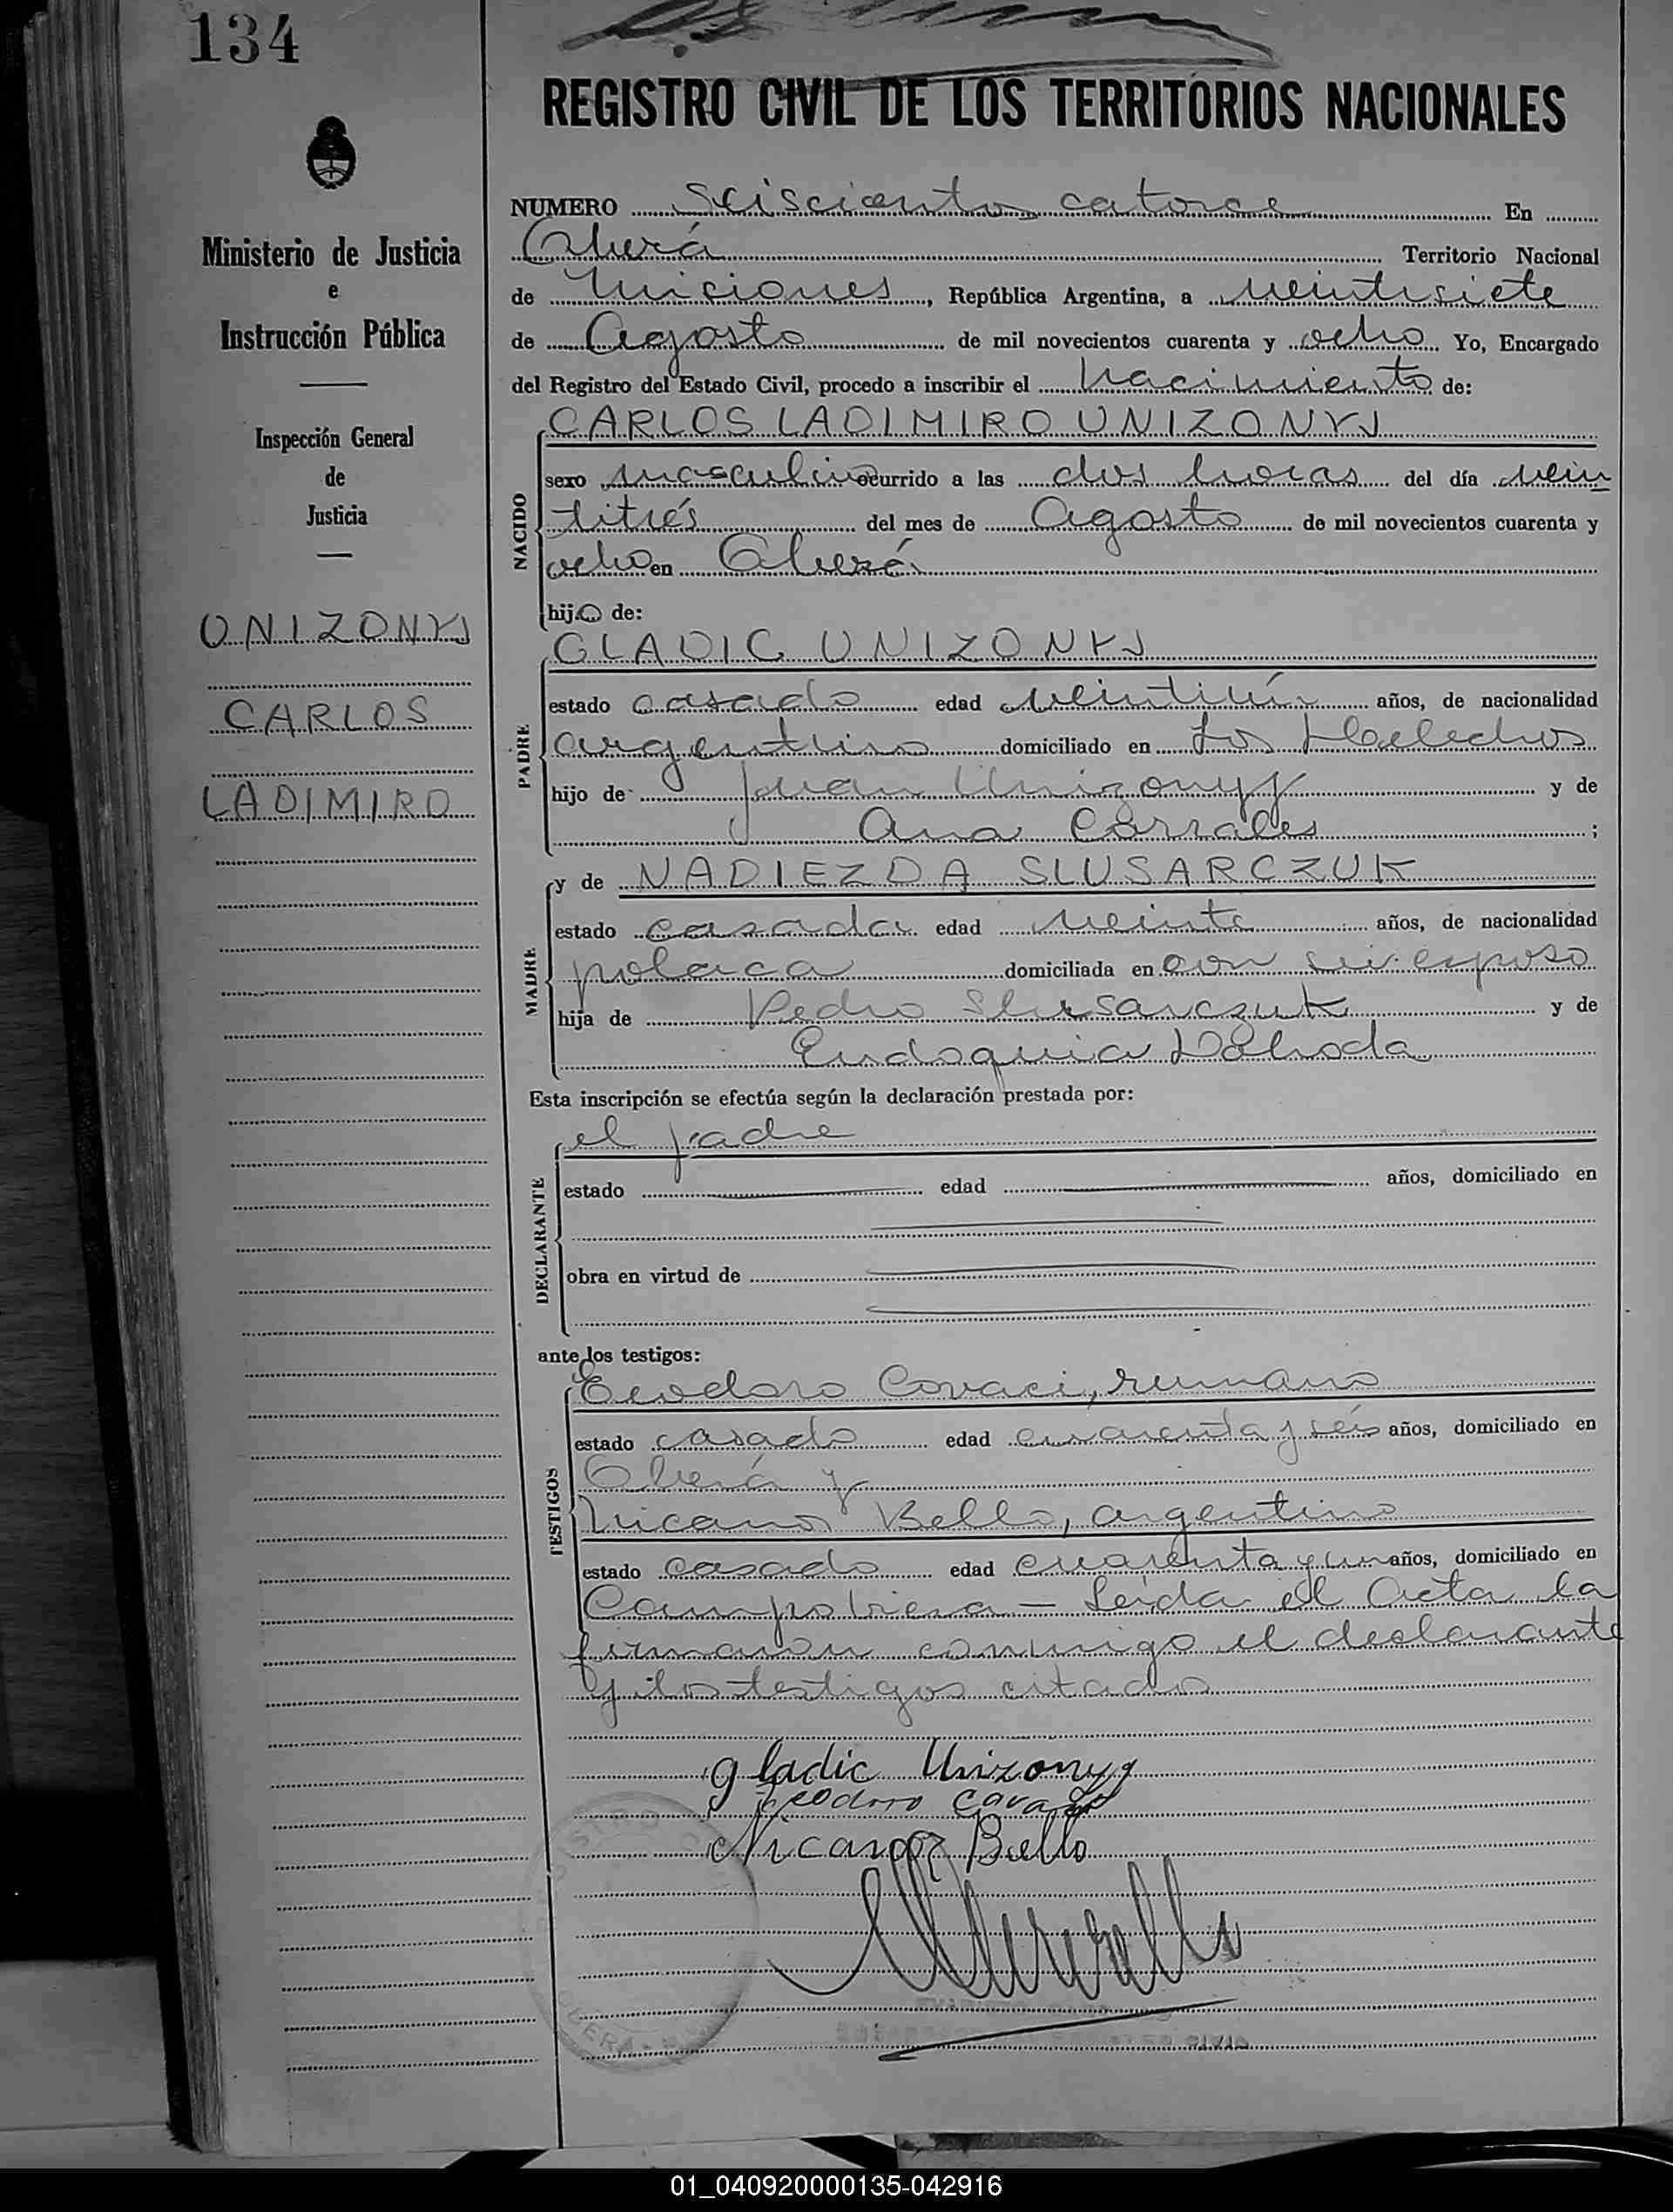 134
REGISTRO CIVIL DE LOS TERRITORIOS NACIONALES
Ministerio de Justicia
e
Instrucción Pública
Inspección General
de
Justicia
UNIZONYJ
CARLOS
LADIMIRO
NUMERO Seiscientos catorce En
Oberá Territorio Nacional
de Misiones, República Argentina, a veintisiete
de Agosto de mil novecientos cuarenta y ocho Yo, Encargado
del Registro del Estado Civil, procedo a inscribir el nacimiento de:
CARLOS LADIMIRO UNIZONYJ
NACIDO
sexo masculino ocurrido a las dos horas del día vein
titrés del mes de Agosto de mil novecientos cuarenta y
ocho en Oberá
hijo de:
GLADIC UNIZONYJ
PADRE
estado casado edad veintiún años, de nacionalidad
argentino domiciliado en Los Helechos
hijo de Juan Unizonyj y de
Ana Corrales;
y de NADIEZDA SLUSARCZUK
MADRE
estado casada edad veinte años, de nacionalidad
polaca domiciliada en con su esposo
hija de Pedro Slusarczuk y de
Eudoquia
Esta inscripción se efectúa según la declaración prestada por:
el padre
DECLARANTE
estado edad años, domiciliado en
obra en virtud de
ante los testigos:
Teodoro Covaci, rumano
TESTIGOS
estado casado edad cuarenta y seis años, domiciliado en
Oberá y
Nicanor Bello, argentino
estado casado edad cuarenta y un años, domiciliado en
Campo Viera — Leída el Acta la
firmaron conmigo el declarante
y los testigos citados
gladic Unizonyj
Teodoro
Nicanor Bello
OBERA
01_040920000135-042916